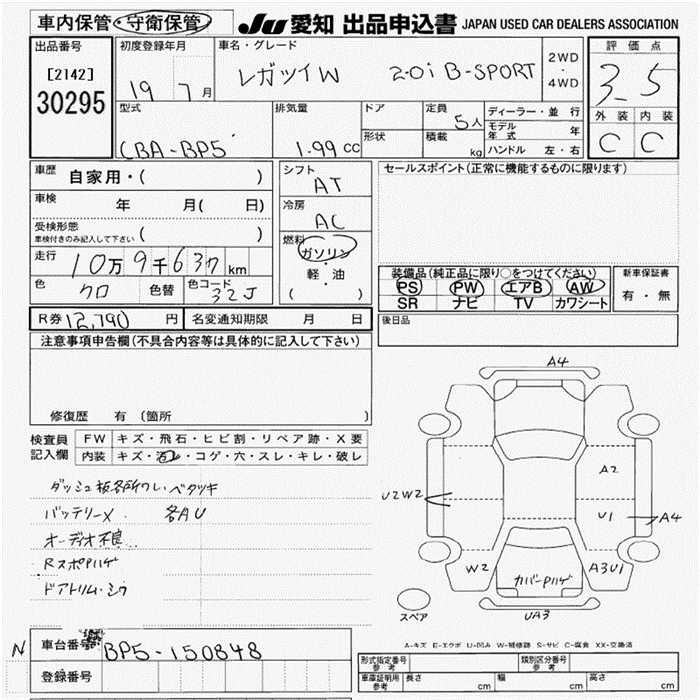 車内保管・守衛保管
JU 愛知 出品申込書 JAPAN USED CAR DEALERS ASSOCIATION
出品番号
[2142]
30295
初度登録年月
19 7月
車名・グレード
レガツイW 2.0i B-SPORT
2WD
・
4WD
評価点
3.5
外装 内装
C C
型式
CBA-BP5
排気量
1.99 CC
ドア
形状
定員
5人
積載
kg
ディーラー・並行
モデル年式 年
ハンドル 左・右
車歴
自家用・( )
車検
年 月( 日)
受検形態
車検付きのみ記入して下さい ( )
走行
10万9千637km
色
クロ
色替
色コード
32J
シフト
AT
冷房
AC
燃料
ガソリン
・
軽・油
( )
セールスポイント(正常に機能するものに限ります)
装備品(純正品に限り○をつけてください)
PS PW エアB AW
SR ナビ TV カワシート
新車保証書
有・無
R券 12,790 円
名変通知期限 月 日
後日品
注意事項申告欄(不具合内容等は具体的に記入して下さい)
修復歴 有(箇所 )
検査員
記入欄
FW キズ・飛石・ヒビ割・リペア跡・X要
内装 キズ・汚レ・コゲ・穴・スレ・キレ・破レ
ダッシュ板各所ワレ・ベタツキ
バッテリーX. 各AU
オーディオ不良
RスポPハゲ
ドアトリム・シワ
A4
A2
U2W2
U1
A4
W2
カバーPハゲ
A3U1
UA3
スペア
A-キズ E-エクボ U-凹み W-補修跡 S-サビ C-腐食 XX-交換済
N
車台番号
BP5-150848
登録番号
型式指定番号
参考
類別区分番号
参考
車庫証明用
参考
長さ cm
幅 cm
高さ cm